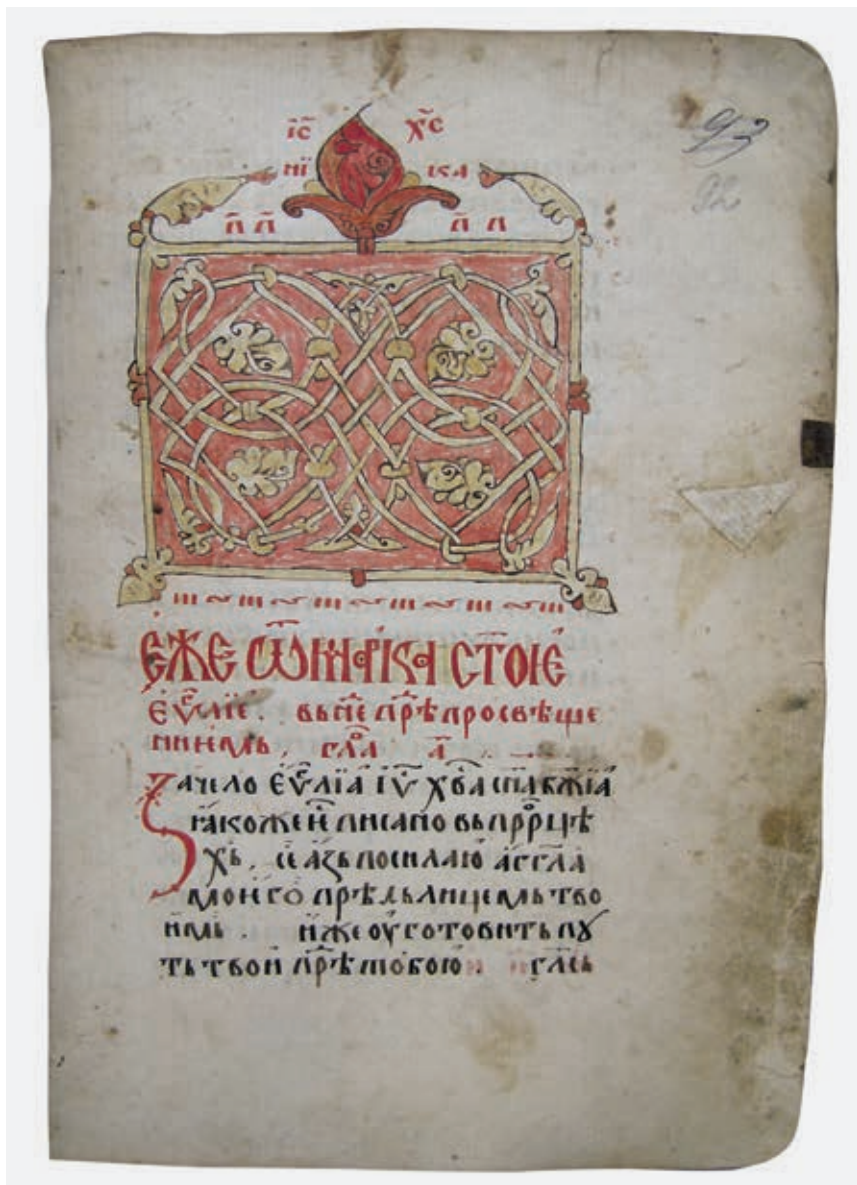 І҃С Х҃С
НЇ КА
Л҃ Л҃ Л҃ Л
93
92
Е҆ЖЕ Ѿ МАРКА СТ҃ОІЕ
Е҆ѵⷢ҇лїе. вь не прⷣѣ просвѣще
ниемь. гла҃ а҃
Зачело е҆ѵⷢ҇лїа і҆ѵ҃ хв҃а сн҃а бж҃їа
ꙗкоже и҆ писано вь прⷪ҇рцѣ
хь. се азь посилаю агг҃ла
моего прѣдь лицемь тво
имь. иже оуготовить пꙋ
ть твои прⷣѣ тобою гл҃сь